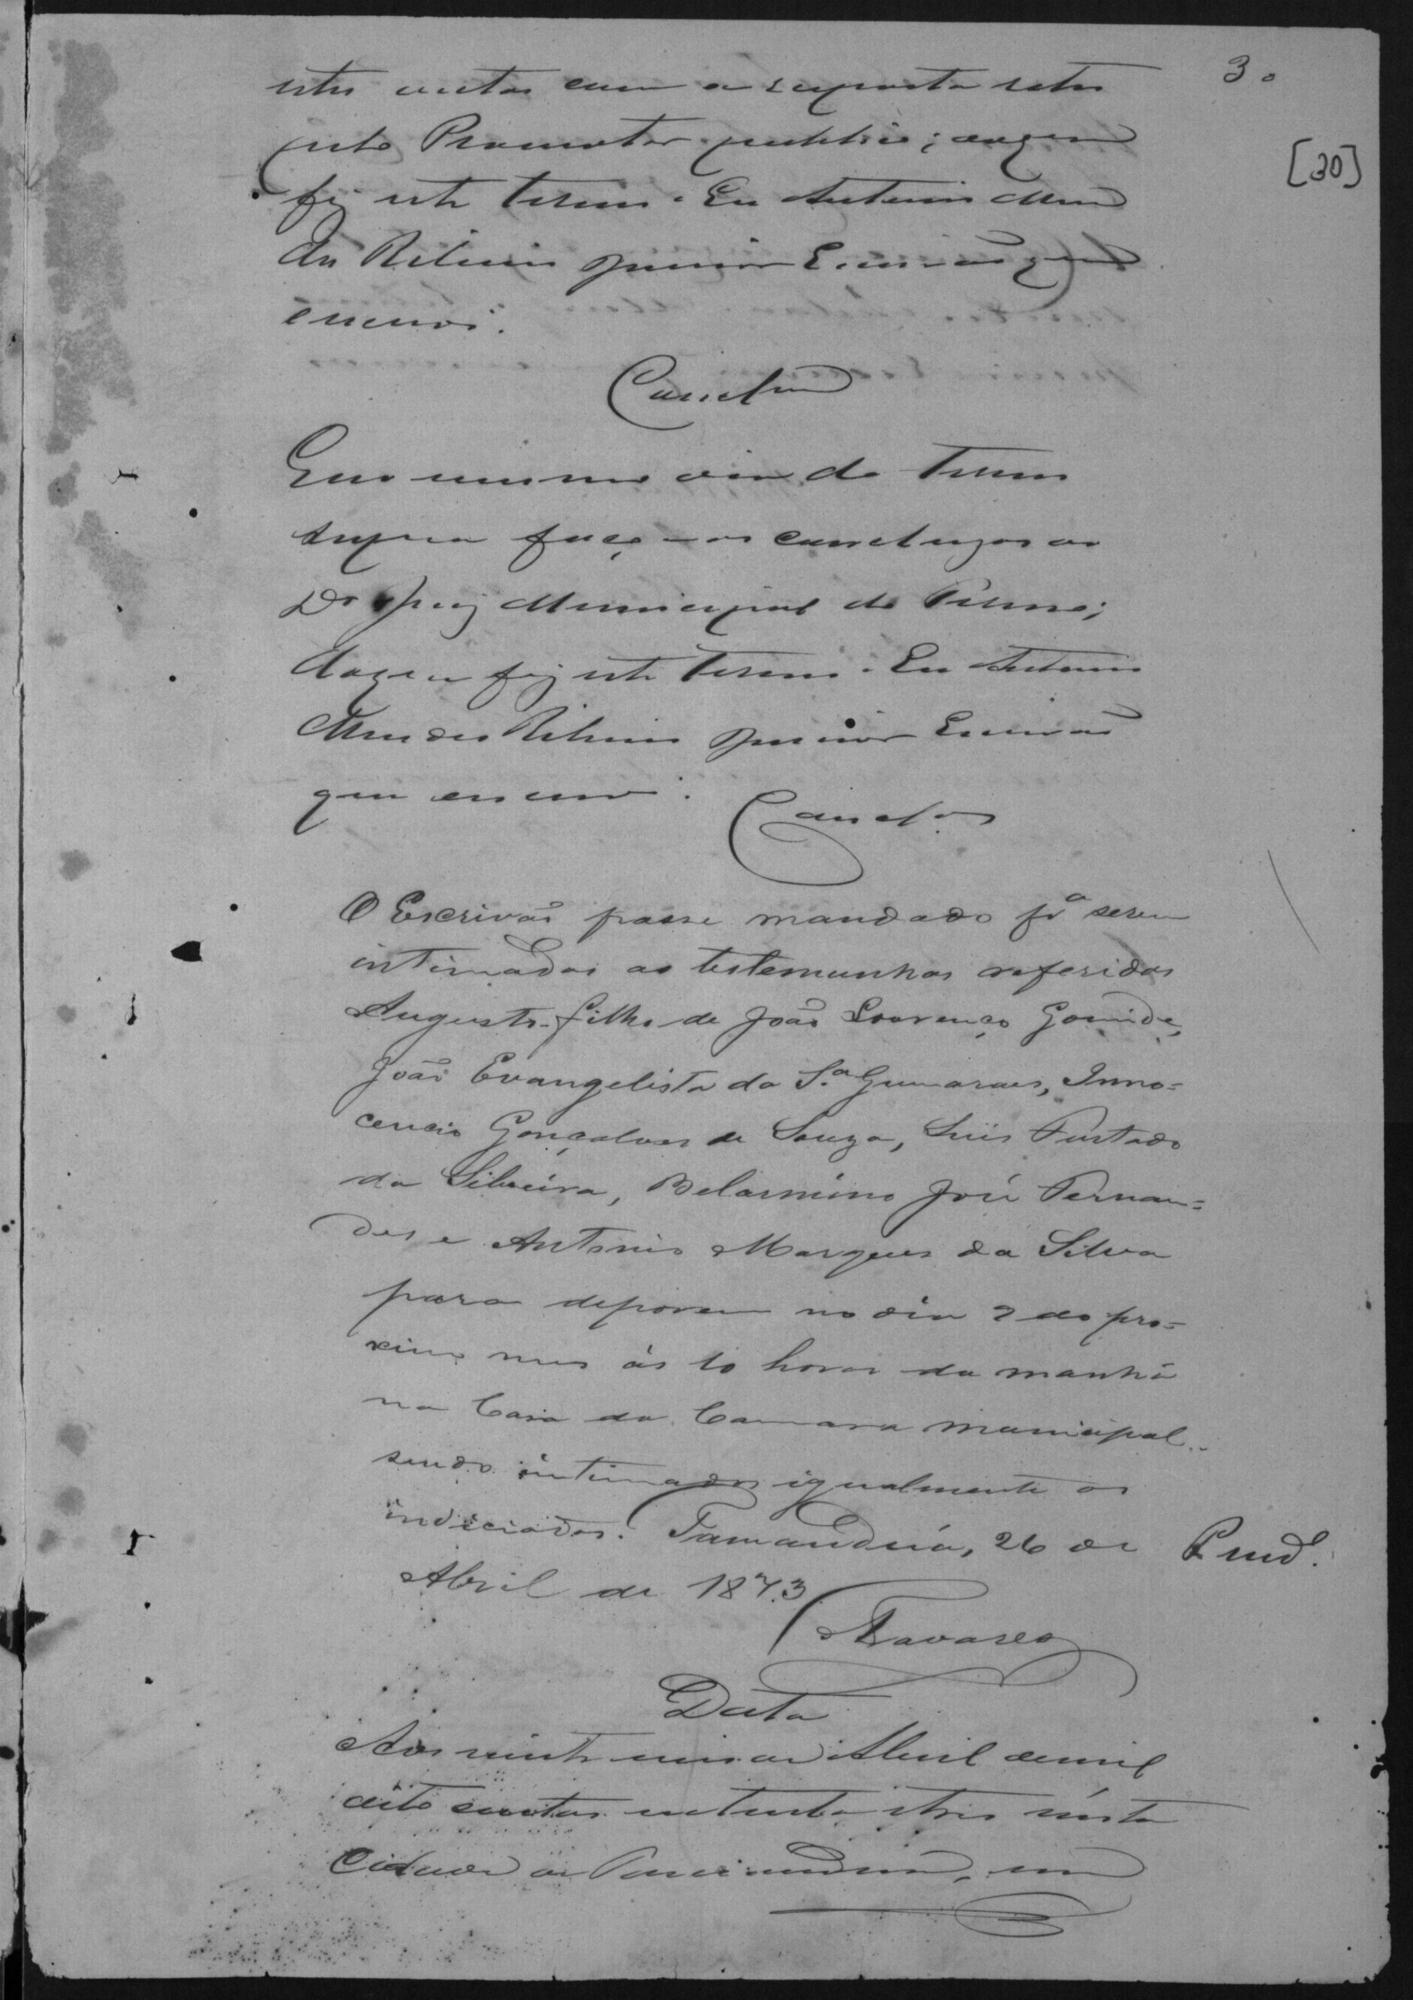 30
[30]
estes autos com a resposta retro
pelo Promotor publico; do que
fiz este termo. Eu Antonio Men
des Ribeiro Junior Escrivão que
escrevi.
Conclusão
E no mesmo dia do termo
supra faço-os conclusos ao
Dr Juiz Municipal do Termo;
do que fiz este termo. Eu Antonio
Mendes Ribeiro Junior Escrivão
que escrevi.
Conclos
O Escrivão passe mandado pa serem
intimadas as testemunhas referidas
Augusto filho de João Lourenço Gomide,
João Evangelista da Sa Gumaraes, Inno=
cencio Gonçalves de Souza, Luis Furtado
da Silveira, Belarmino José Fernan=
des e Antonio Marques da Silva
para deporem no dia 2 do pro=
ximo mes ás 10 horas da manhã
na Casa da Camara municipal
sendo intimados igualmente os
indiciados. Tamanduá, 26 de
Abril de 1873
Tavares
Data
Aos vinte seis de Abril de mil
oito centos setenta e tres nésta
Cidade de Tamanduá, em